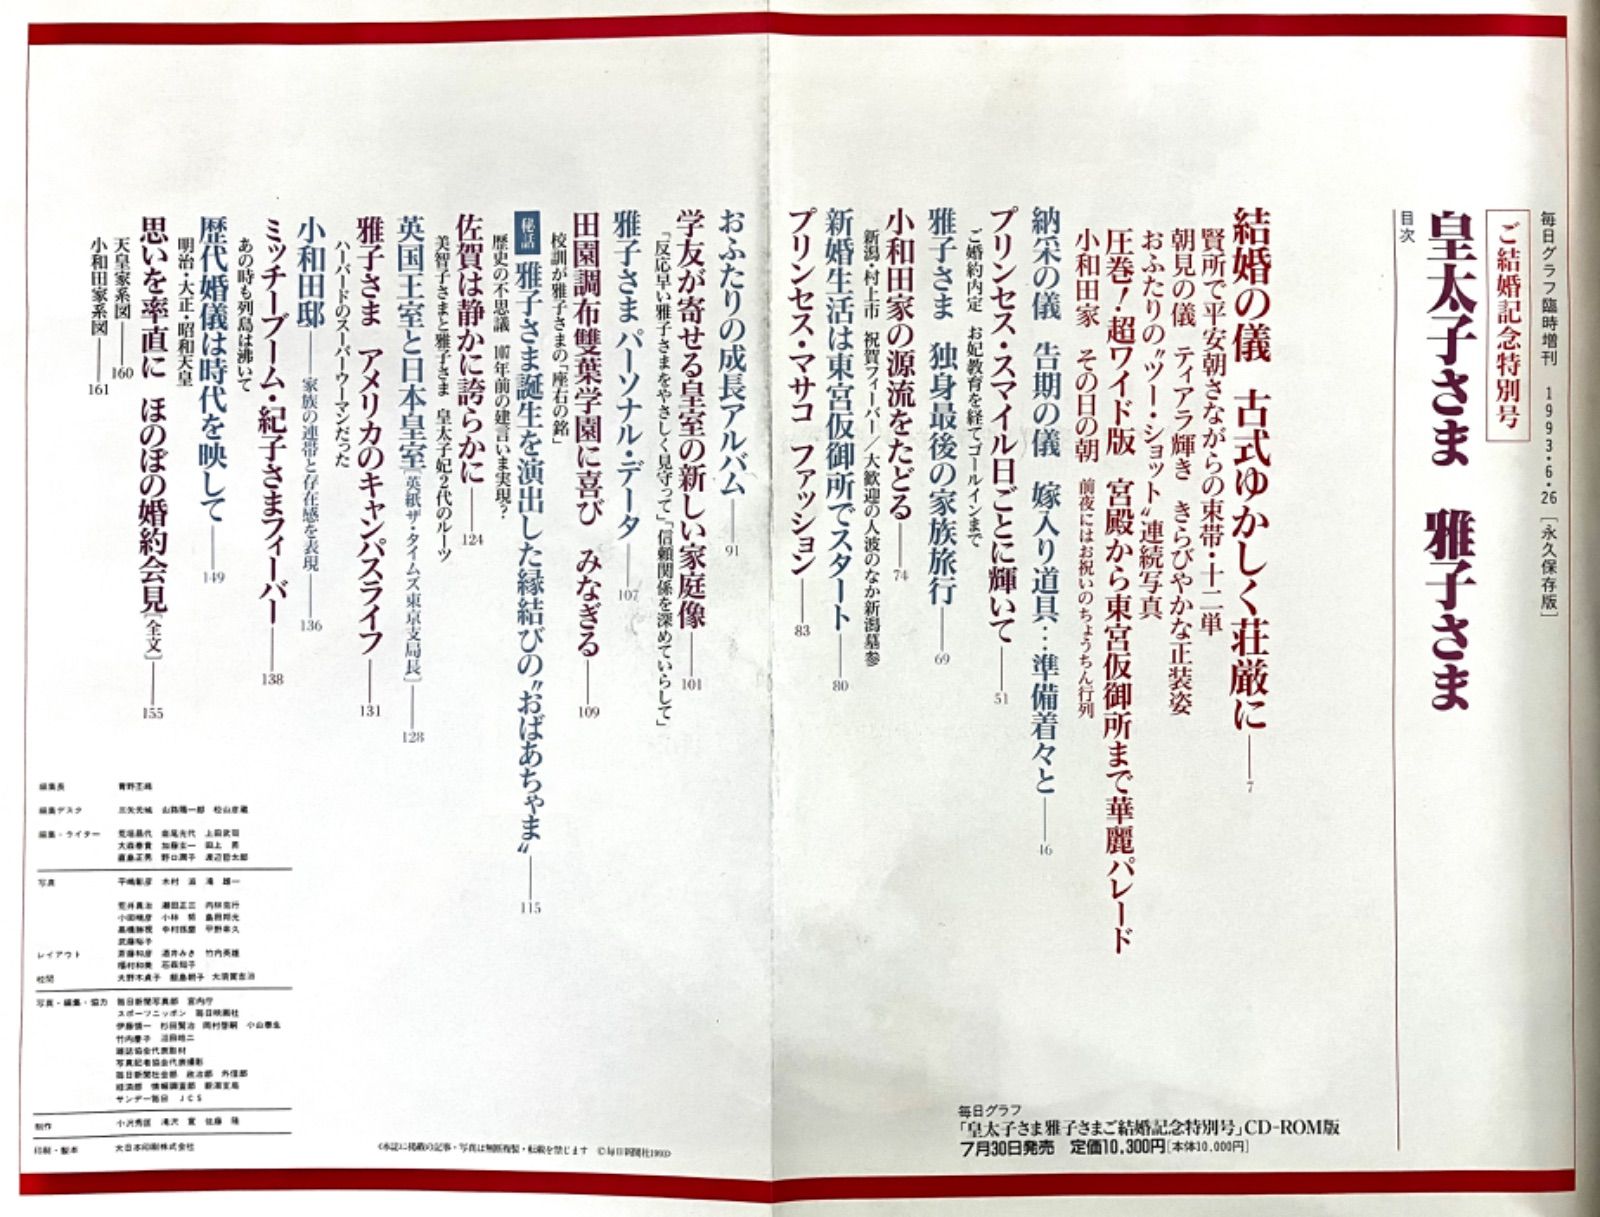 毎日グラフ臨時増刊 1993・6・26［永久保存版］
ご結婚記念特別号
皇太子さま 雅子さま
目次
結婚の儀 古式ゆかしく荘厳に——7
賢所で平安朝さながらの束帯・十二単
朝見の儀 ティアラ輝き きらびやかな正装姿
おふたりの〝ツー・ショット〟連続写真
圧巻！超ワイド版 宮殿から東宮仮御所まで華麗パレード
小和田家 その日の朝 前夜にはお祝いのちょうちん行列
納采の儀 告期の儀 嫁入り道具…準備着々と——46
プリンセス・スマイル日ごとに輝いて——51
ご婚約内定 お妃教育を経てゴールインまで
雅子さま 独身最後の家族旅行——69
小和田家の源流をたどる——74
新潟・村上市 祝賀フィーバー／大歓迎の人波のなか新潟墓参
新婚生活は東宮仮御所でスタート——80
プリンセス・マサコ ファッション——83
おふたりの成長アルバム——91
学友が寄せる皇室の新しい家庭像——101
「反応早い雅子さまをやさしく見守って」「信頼関係を深めていらして」
雅子さま パーソナル・データ——107
田園調布雙葉学園に喜び みなぎる——109
校訓が雅子さまの「座右の銘」
秘話 雅子さま誕生を演出した縁結びの〝おばあちゃま〟——115
歴史の不思議 107年前の建言いま実現？
佐賀は静かに誇らかに——124
美智子さまと雅子さま 皇太子妃2代のルーツ
英国王室と日本皇室［英紙ザ・タイムズ東京支局長］——128
雅子さま アメリカのキャンパスライフ——131
ハーバードのスーパーウーマンだった
小和田邸——家族の連帯と存在感を表現——136
ミッチーブーム・紀子さまフィーバー——138
あの時も列島は沸いて
歴代婚儀は時代を映して——149
明治・大正・昭和天皇
思いを率直に ほのぼの婚約会見［全文］——155
天皇家系図——160
小和田家系図——161
編集長
編集デスク
編集・ライター
写真
レイアウト
校閲
写真・編集・協力 毎日新聞写真部 宮内庁
スポーツニッポン 毎日映画社
雑誌協会代表取材
写真記者協会代表撮影
毎日新聞社会部 政治部 外信部
経済部 情報調査部 新潟支局
サンデー毎日 JCS
制作
印刷・製本 大日本印刷株式会社
《本誌に掲載の記事・写真は無断複製・転載を禁じます ©毎日新聞社1993》
毎日グラフ
「皇太子さま雅子さまご結婚記念特別号」CD-ROM版
7月30日発売 定価10,300円［本体10,000円］